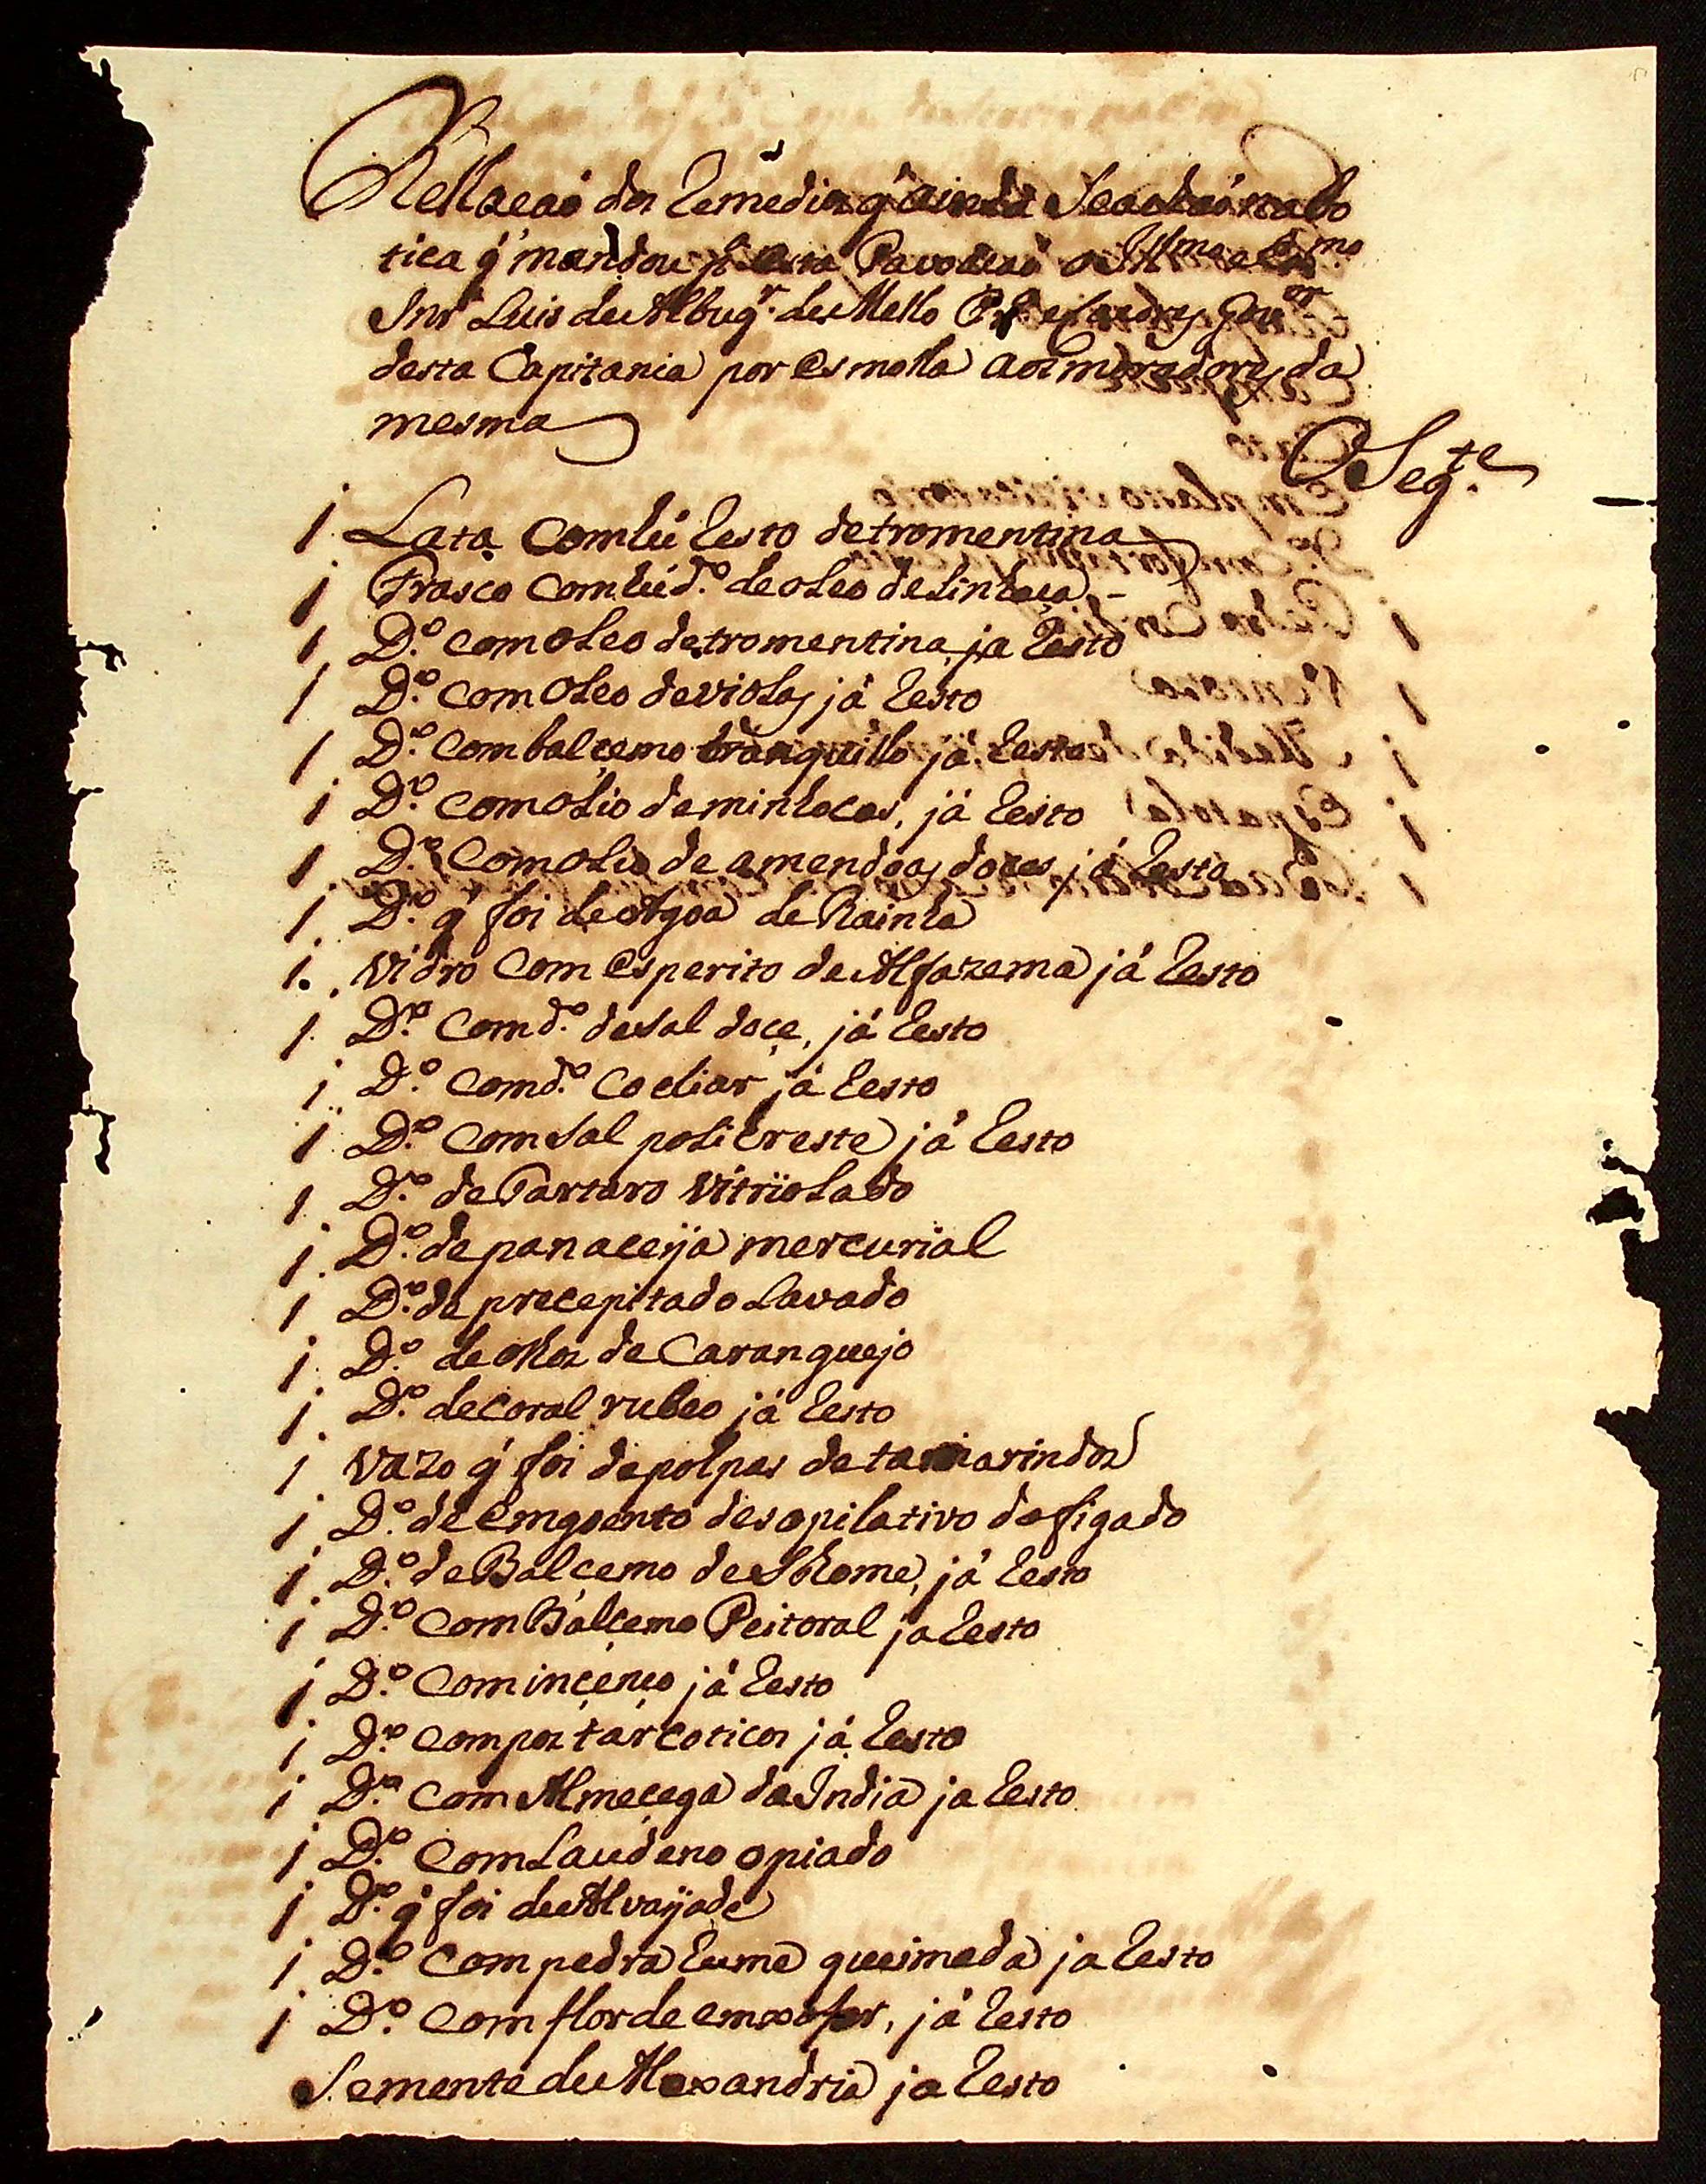 Rellacaó dos Remedios q' ainda Seachaó nabo
tica q' mandou p.ª esta Povoacaó o Ill.mo e Ex.mo
Snr Luis de Albuq.r de Mello P.ra e Caceres Gov.or
desta Capitania por esmolla aos moradores da
mesma
O Seg.te
1 Lata comhú Resto detromentina
1 Frasco comhú d.º de oleo delinhaça
1 D.º com oleo detromentina, ja Resto
1 D.º com oleo deviolas já Resto
1 D.º com balçemo tranquillo já Resto
1 D.º com olio deminhocas, já Resto
1 D.º com olio de amendoas doces, já Resto
1 D.º q' foi de Agoa de Rainha
1 Vidro com esperito de Alfazema já Resto
1 D.º com d.º de sal doce, já Resto
1 D.º com d.º Cocliar já Resto
1 D.º com sal policreste já Resto
1 D.º de Tartaro Vitriolado
1 D.º de panaceija mercurial
1 D.º de precepitado Lavado
1 D.º de olhos de Caranguejo
1 D.º de coral rubeo já Resto
1 Vazo q' foi de polpas de tamarindos
1 D.º de emgoento desopilativo do figado
1 D.º de Balçemo de Shome, já Resto
1 D.º com Balçemo Peitoral ja Resto
1 D.º com inçenço já Resto
1 D.º com pos tarcoticos já Resto
1 D.º com Almecega da India ja Resto
1 D.º com Laudeno opiado
1 D.º q' foi de Alvaijade
1 D.º com pedra hume queimada ja Resto
1 D.º com flor de emxofer, já Resto
Semente de Alexandria ja Resto